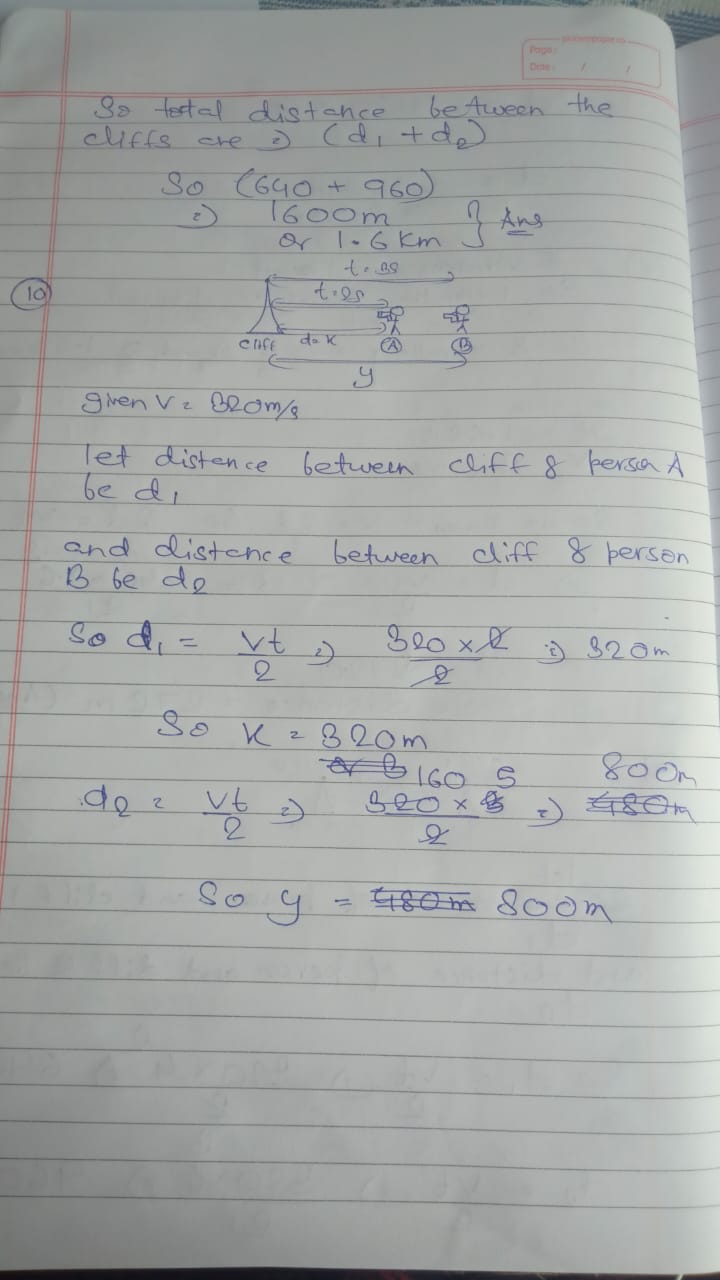 Page:
Date: / /
So total distance between the
cliffs are ⇒ (d₁ + d₂)
So (640 + 960)
⇒ 1600m
or 1.6 Km } Ans
t = 3s
(10)
t = 2s
d = x
cliff
(A)
(B)
y
given V = 320m/s
let distence between cliff & person A
be d₁
and distance between cliff & person
B be d₂
So d₁ = Vt/2 ⇒ 320 × 2/2 ⇒ 320m
So x = 320m
160 5 800m
d₂ = Vt/2 ⇒ 320 × /2 ⇒ 480m
So y = 480m 800m